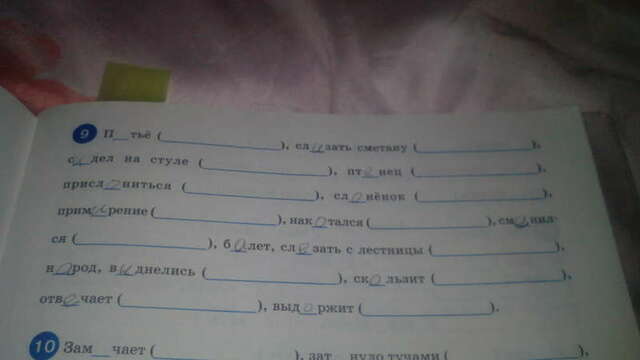 9 П_тьё (____________), слизать сметану (____________),
сидел на стуле (____________), птенец (____________),
прислониться (____________), слонёнок (____________),
примирение (____________), накатался (____________), сменил-
ся (____________), балет, слезать с лестницы (____________),
народ, виднелись (____________), скользит (____________),
отвечает (____________), выдержит (____________).
10 Зам_чает (____________), зат_нуло тучами (____________),